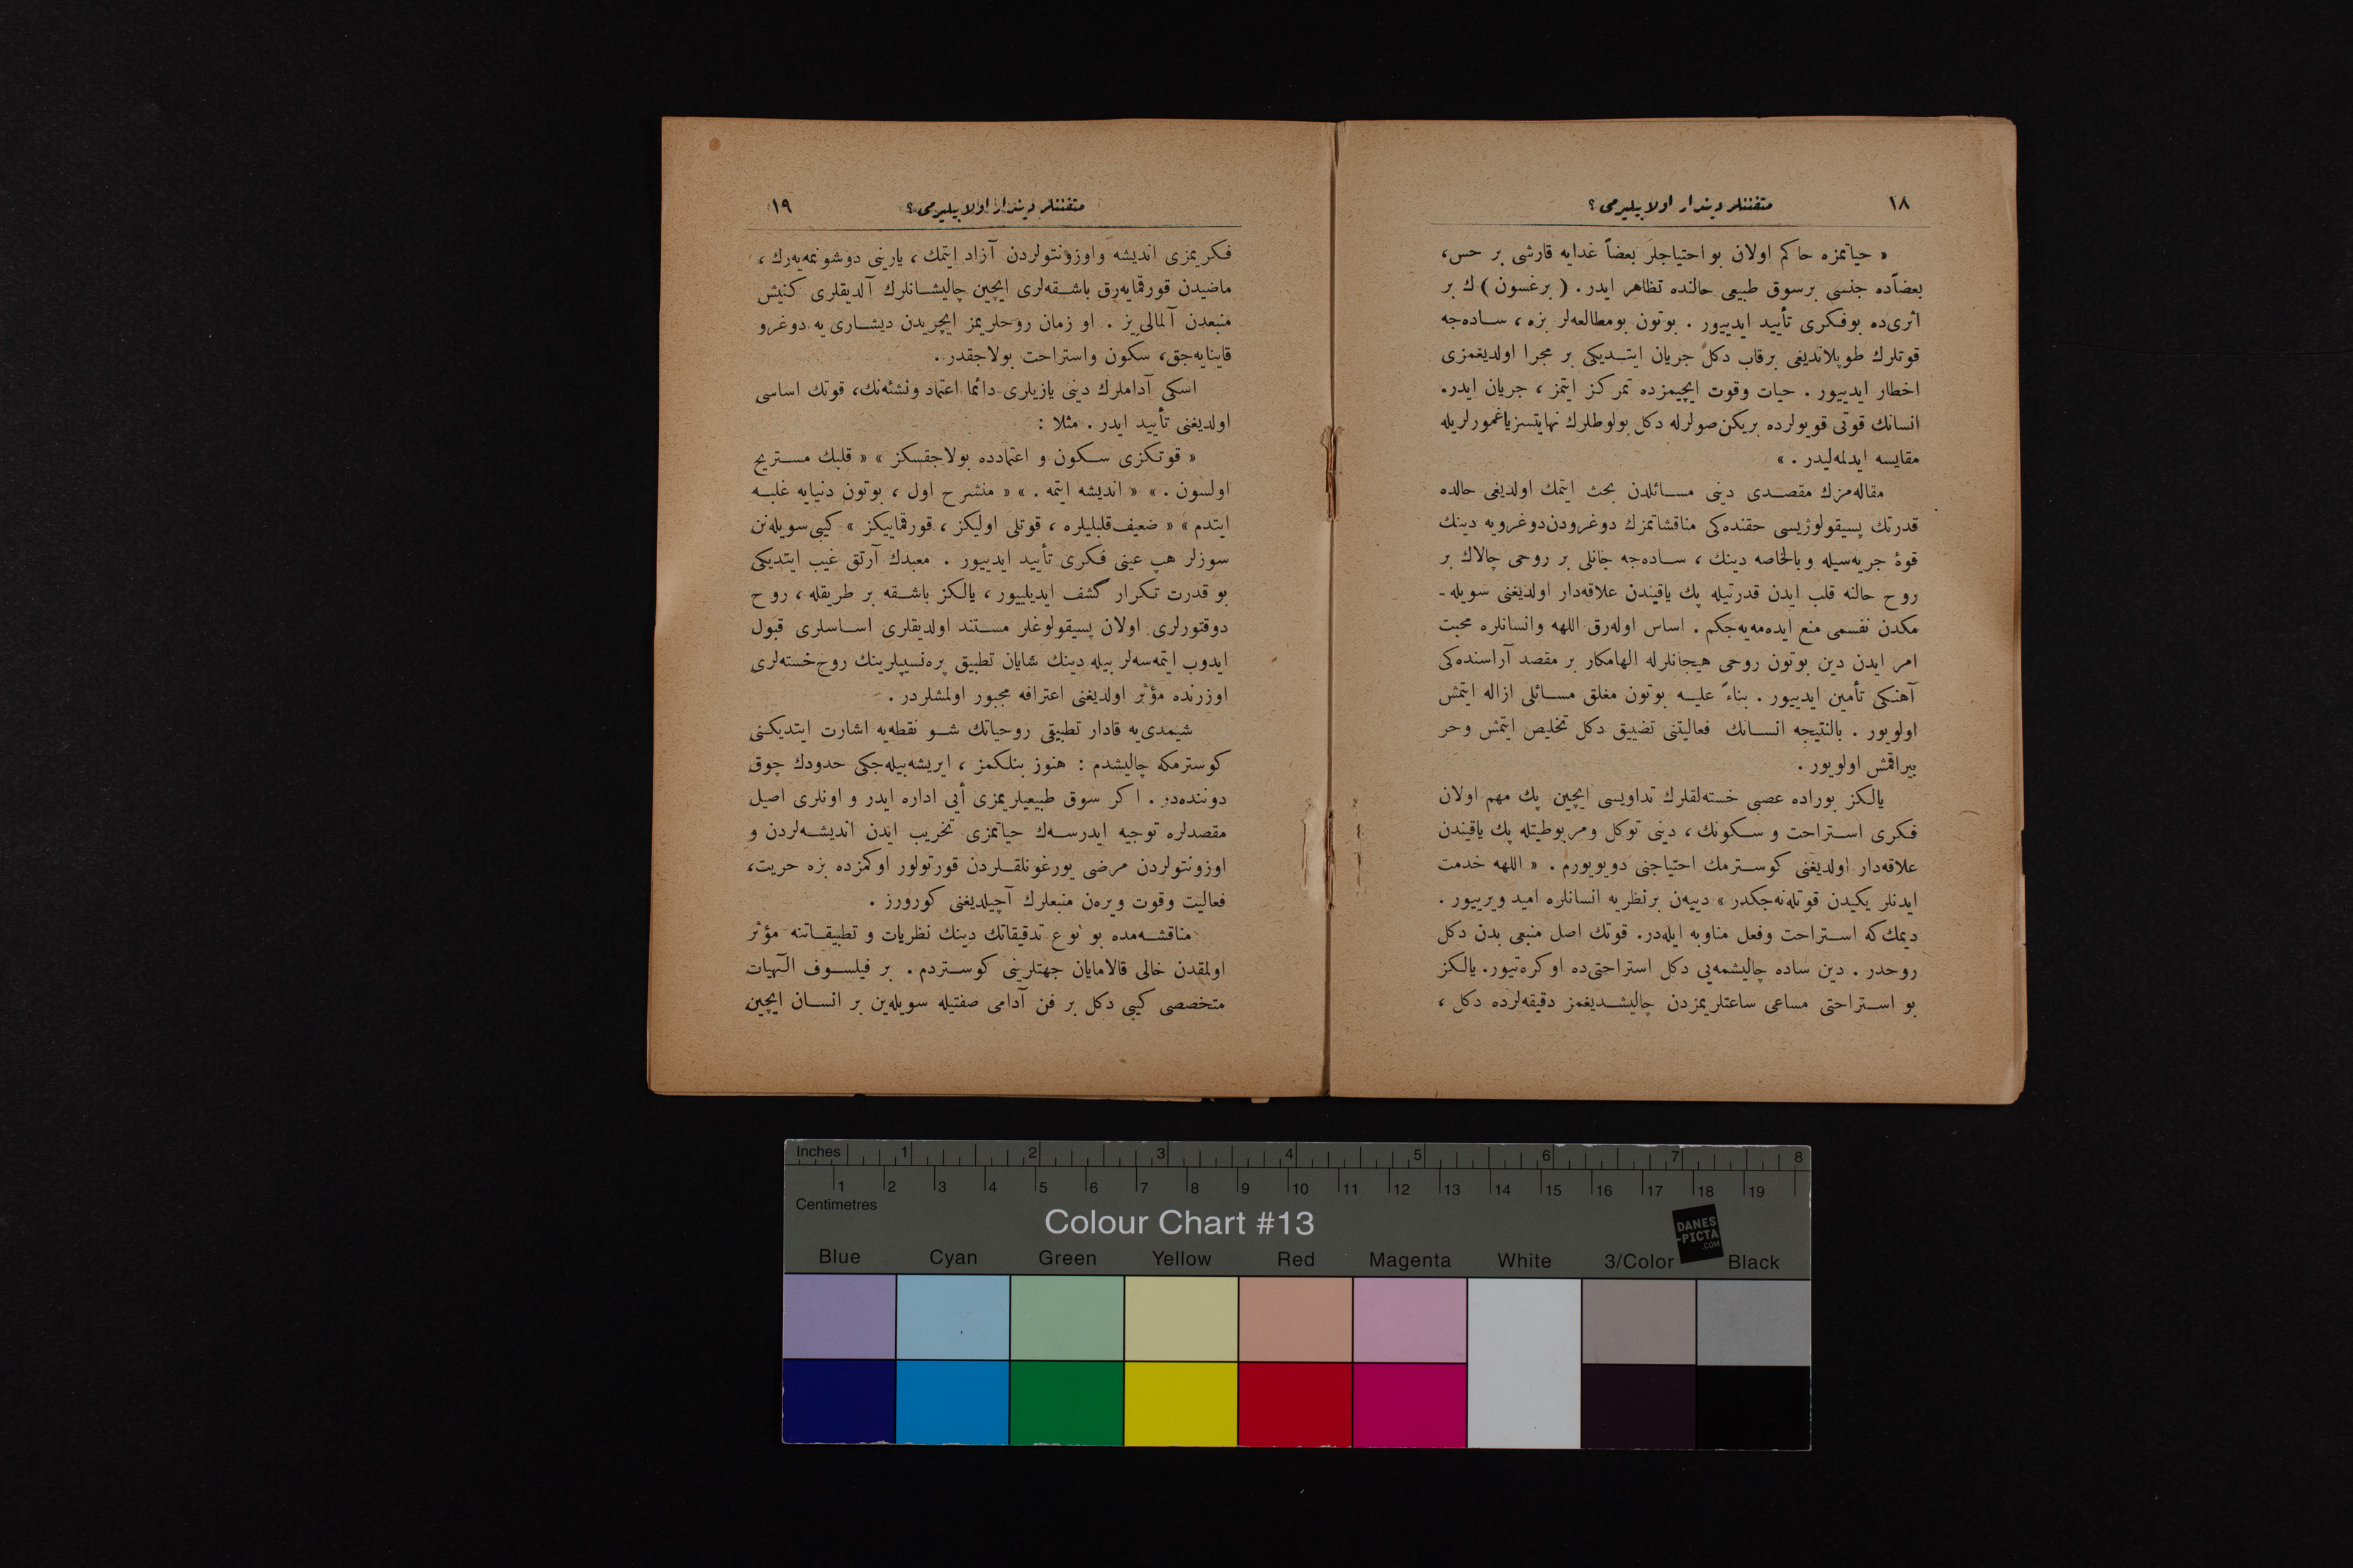 ١٨
متفننلر دیندار اولابیلیرمی ؟
« حیاتمزه حاکم اولان بو احتیاجلر بعضاً غدایه قارشی بر حس،
بعضاًده جنسی برسوق طبیعی حالنده تظاهر ایدر . ( برغسون ) ك بر
اثری‌ده بوفکری تأیید ایدییور . بوتون بومطالعه‌لر بزه ، ساده‌جه
قوتلرك طوپلاندیغی برقاب دکل جریان ایتدیکی بر مجرا اولدیغمزی
اخطار ایدییور . حیات وقوت ایچیمزده تمرکز ایتمز ، جریان ایدر.
انسانك قوتی قویولرده بریکن صولرله دکل بولوطلرك نهایتسزیاغمورلریله
مقایسه ایدلمه‌لیدر . »
مقاله‌مزك مقصدی دینی مسائلدن بحث ایتمك اولدیغی حالده
قدرتك پسیقولوژیسی حقنده‌کی مناقشاتمزك دوغرودن‌دوغرویه دینك
قوهٔ جریه‌سیله وبالخاصه دینك ، ساده‌جه جانلی بر روحی چالاك بر
روح حالنه قلب ایدن قدرتیله پك یاقیندن علاقه‌دار اولدیغنی سویله ـ
مکدن نفسمی منع ایده‌مه‌یه‌جکم . اساس اوله‌رق اللهه وانسانلره محبت
امر ایدن دین بوتون روحی هیجانلرله الهامکار بر مقصد آراسنده‌کی
آهنکی تأمین ایدییور . بناءً علیه بوتون مغلق مسائلی ازاله ایتمش
اولویور . بالنتیجه انسانك فعالیتنی تضییق دکل تخلیص ایتمش وحر
بیراقمش اولویور .
یالکز بوراده عصبی خسته‌لقلرك تداویسی ایچین پك مهم اولان
فکری استراحت و سکونك ، دینی توکل ومربوطیتله پك یاقیندن
علاقه‌دار اولدیغنی کوسترمك احتیاجنی دویویورم . « اللهه خدمت
ایدنلر یکیدن قوتلنه‌جکدر » دییه‌ن برنظریه انسانلره امید ویرییور .
دیمك‌که استراحت وفعل مناوبه ایله‌در. قوتك اصل منبعی بدن دکل
روحدر . دین ساده چالیشمه‌یی دکل استراحتی‌ده اوکره‌تیور. یالکز
بو استراحتی مساعی ساعتلریمزدن چالیشدیغمز دقیقه‌لرده دکل ،
متفننلر دیندار اولابیلیرمی ؟
١٩
فکریمزی اندیشه واوزونتولردن آزاد ایتمك ، یارینی دوشونمه‌یه‌رك ،
ماضیدن قورقمایه‌رق باشقه‌لری ایچین چالیشانلرك آلدیقلری کنیش
منبعدن آلمالی‌یز . او زمان روحلریمز ایچریدن دیشاری یه دوغرو
قاینایه‌جق، سکون واستراحت بولاجقدر .
اسکی آداملرك دینی یازیلری دائما اعتماد ونشئه‌نك، قوتك اساسی
اولدیغنی تأیید ایدر . مثلا :
« قوتکزی سکون و اعتمادده بولاجقسکز » « قلبك مستریح
اولسون . » « اندیشه ایتمه . » « منشرح اول ، بوتون دنیایه غلبه
ایتدم » « ضعیف‌قلبلیلره ، قوتلی اولیکز ، قورقماییکز » کیبی‌سویله‌نن
سوزلر هپ عینی فکری تأیید ایدییور . معبدك آرتق غیب ایتدیکی
بو قدرت تکرار گشف ایدیلییور ، یالکز باشقه بر طریقله ، روح
دوقتورلری اولان پسیقولوغلر مستند اولدیقلری اساسلری قبول
ایدوب ایتمه‌سه‌لر بیله دینك شایان تطبیق پره‌نسیپلرینك روح‌خسته‌لری
اوزرنده مؤثر اولدیغنی اعترافه مجبور اولمشلردر .
شیمدی‌یه قادار تطبیقی روحیاتك شو نقطه‌یه اشارت ایتدیکنی
کوسترمکه چالیشدم : هنوز بنلکمز ، ایریشه‌بیله‌جکی حدودك چوق
دوننده‌در . اکر سوق طبیعیلریمزی أیی اداره ایدر و اونلری اصیل
مقصدلره توجیه ایدرسه‌ك حیاتمزی تخریب ایدن اندیشه‌لردن و
اوزونتولردن مرضی یورغونلقلردن قورتولور اوکمزده بزه حریت،
فعالیت وقوت ویره‌ن منبعلرك آچیلدیغنی کورورز .
مناقشه‌مده بو نوع تدقیقاتك دینك نظریات و تطبیقاتنه مؤثر
اولمقدن خالی قالامایان جهتلرینی کوستردم . بر فیلسوف الٓهیات
متخصصی کیبی دکل بر فن آدامی صفتیله سویله‌ین بر انسان ایچین
Inches 1 2 3 4 5 6 7 8
1 2 3 4 5 6 7 8 9 10 11 12 13 14 15 16 17 18 19
Centimetres
Colour Chart #13
DANES
-PICTA
.COM
Blue Cyan Green Yellow Red Magenta White 3/Color Black